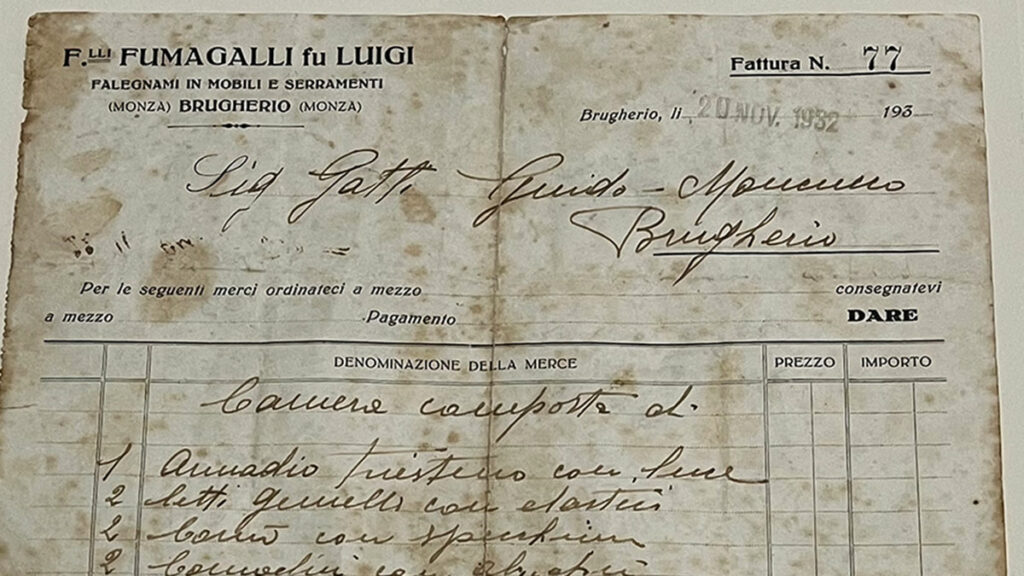 F.LLI FUMAGALLI fu LUIGI
FALEGNAMI IN MOBILI E SERRAMENTI
(MONZA) BRUGHERIO (MONZA)
Fattura N. 77
Brugherio, li 20 NOV. 1932 193
Sig Gatti Guido - Moncucco
Brugherio
Per le seguenti merci ordinateci a mezzo consegnatevi
a mezzo Pagamento DARE
DENOMINAZIONE DELLA MERCE PREZZO IMPORTO
Camera composta di
1 Armadio con luce
2 letti gemelli con elastici
2 Comò con
2 Comodini con